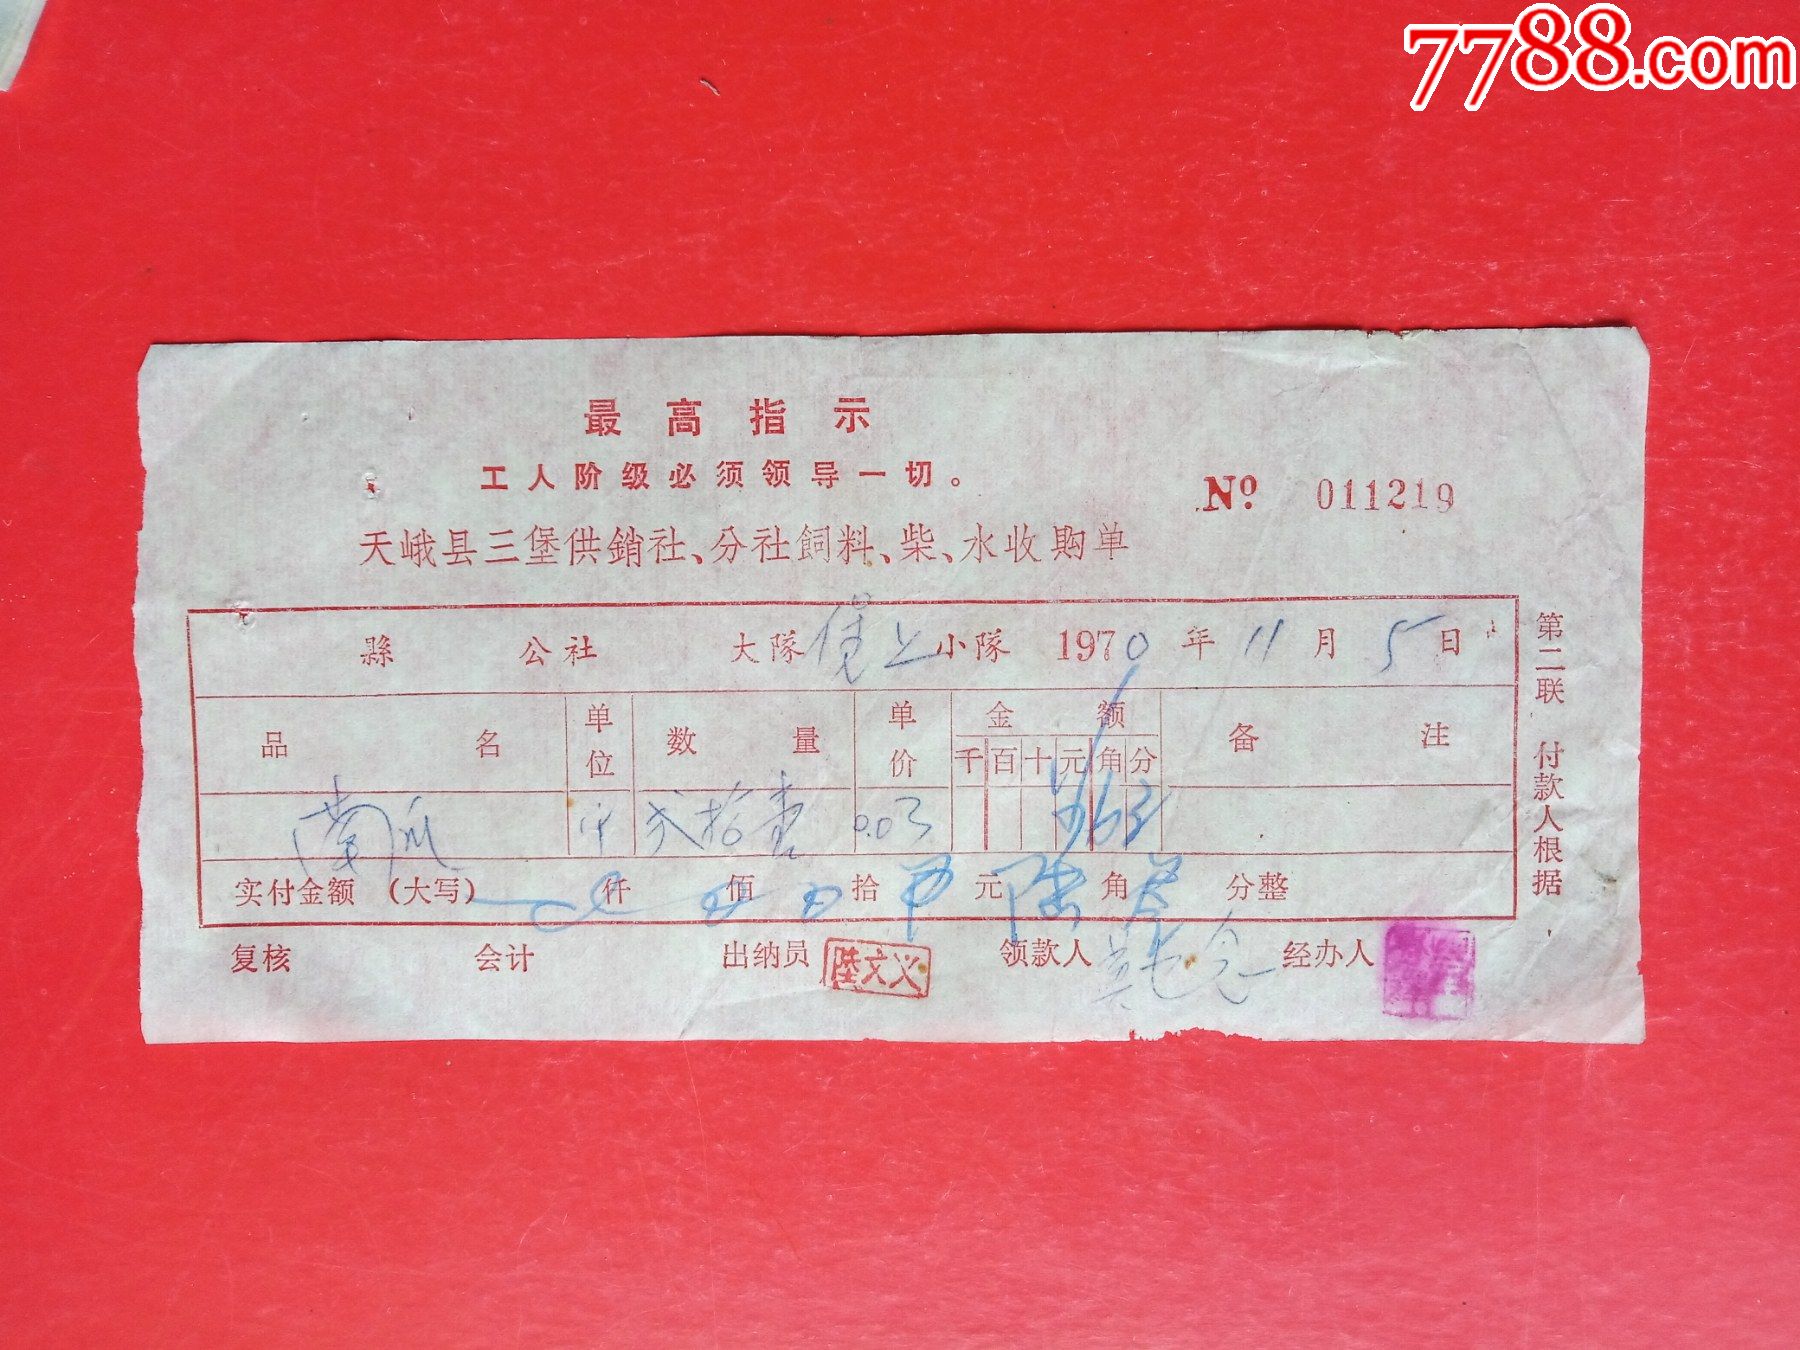 7788.com
最高指示
工人阶级必须领导一切。
No 011219
天峨县三堡供銷社、分社飼料、柴、水收购单
縣 公社 大隊 堡上 小隊 1970 年 11 月 5 日
品名 单位 数量 单价 金额 备注
千 百 十 元 角 分
南瓜 斤 贰拾壹 0.03 ¥ 0 6 3
实付金额 (大写) 仟 佰 拾 元 陆 角 叁 分整
复核 会计 出纳员 陸文义 领款人 经办人
第二联 付款人根据